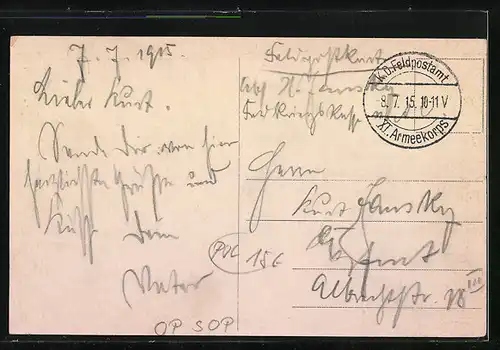 7. 7. 1915
Lieber Kurt.
Sende Dir von hier
herzlichste Grüße und
Küsse Dein
Vater
Feldpostkarte
Abs. H. Jansky
Feldkriegskasse
K.D.Feldpostamt
8. 7. 15. 10-11 V
XI. Armeekorps
Herrn
Kurt Jansky
Erfurt
Albrechtstr.
III
PVC
15€
OP SOP